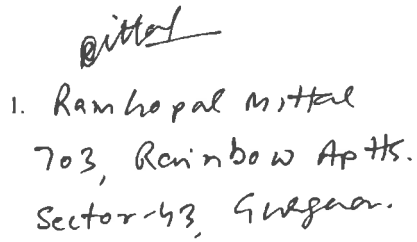 1. Ramhopal Mittal
703, Rainbow Aptts.
Sector-43, Gurgaon.